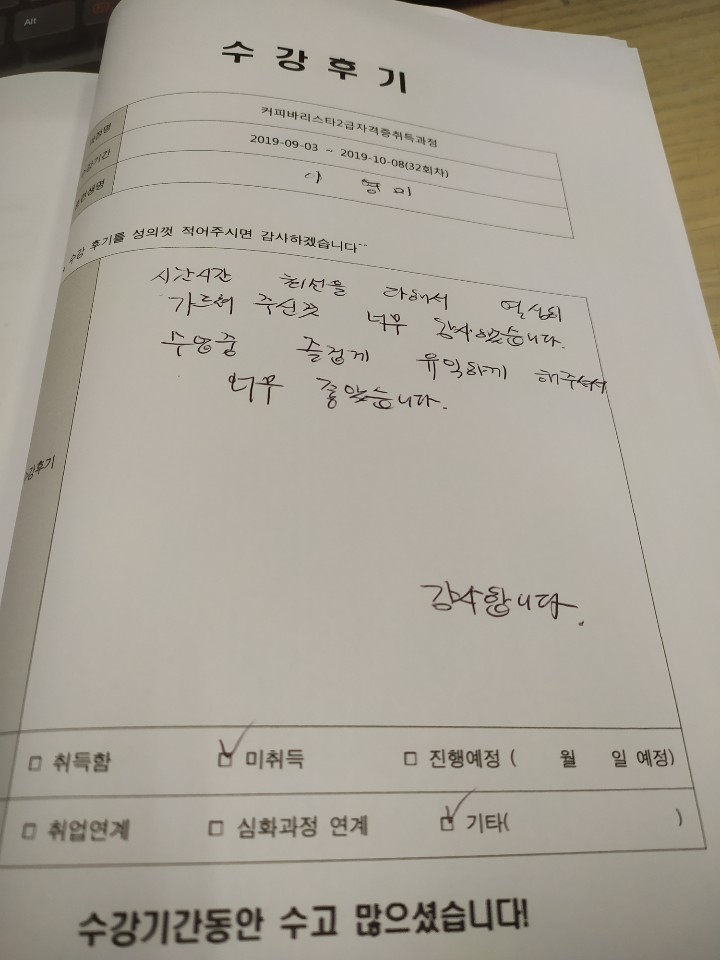 Alt
수강후기
커피바리스타2급자격증취득과정
2019-09-03 ~ 2019-10-08(32회차)
이 형미
수강 후기를 성의껏 적어주시면 감사하겠습니다^^
지난시간 최선을 다해서 열심히
가르쳐 주신것 너무 감사했습니다.
수업중 즐겁게 유익하게 해주셔서
너무 좋았습니다.
수강후기
감사합니다.
□ 취득함 ☑ 미취득 □ 진행예정 ( 월 일 예정)
□ 취업연계 □ 심화과정 연계 ☑ 기타( )
수강기간동안 수고 많으셨습니다!